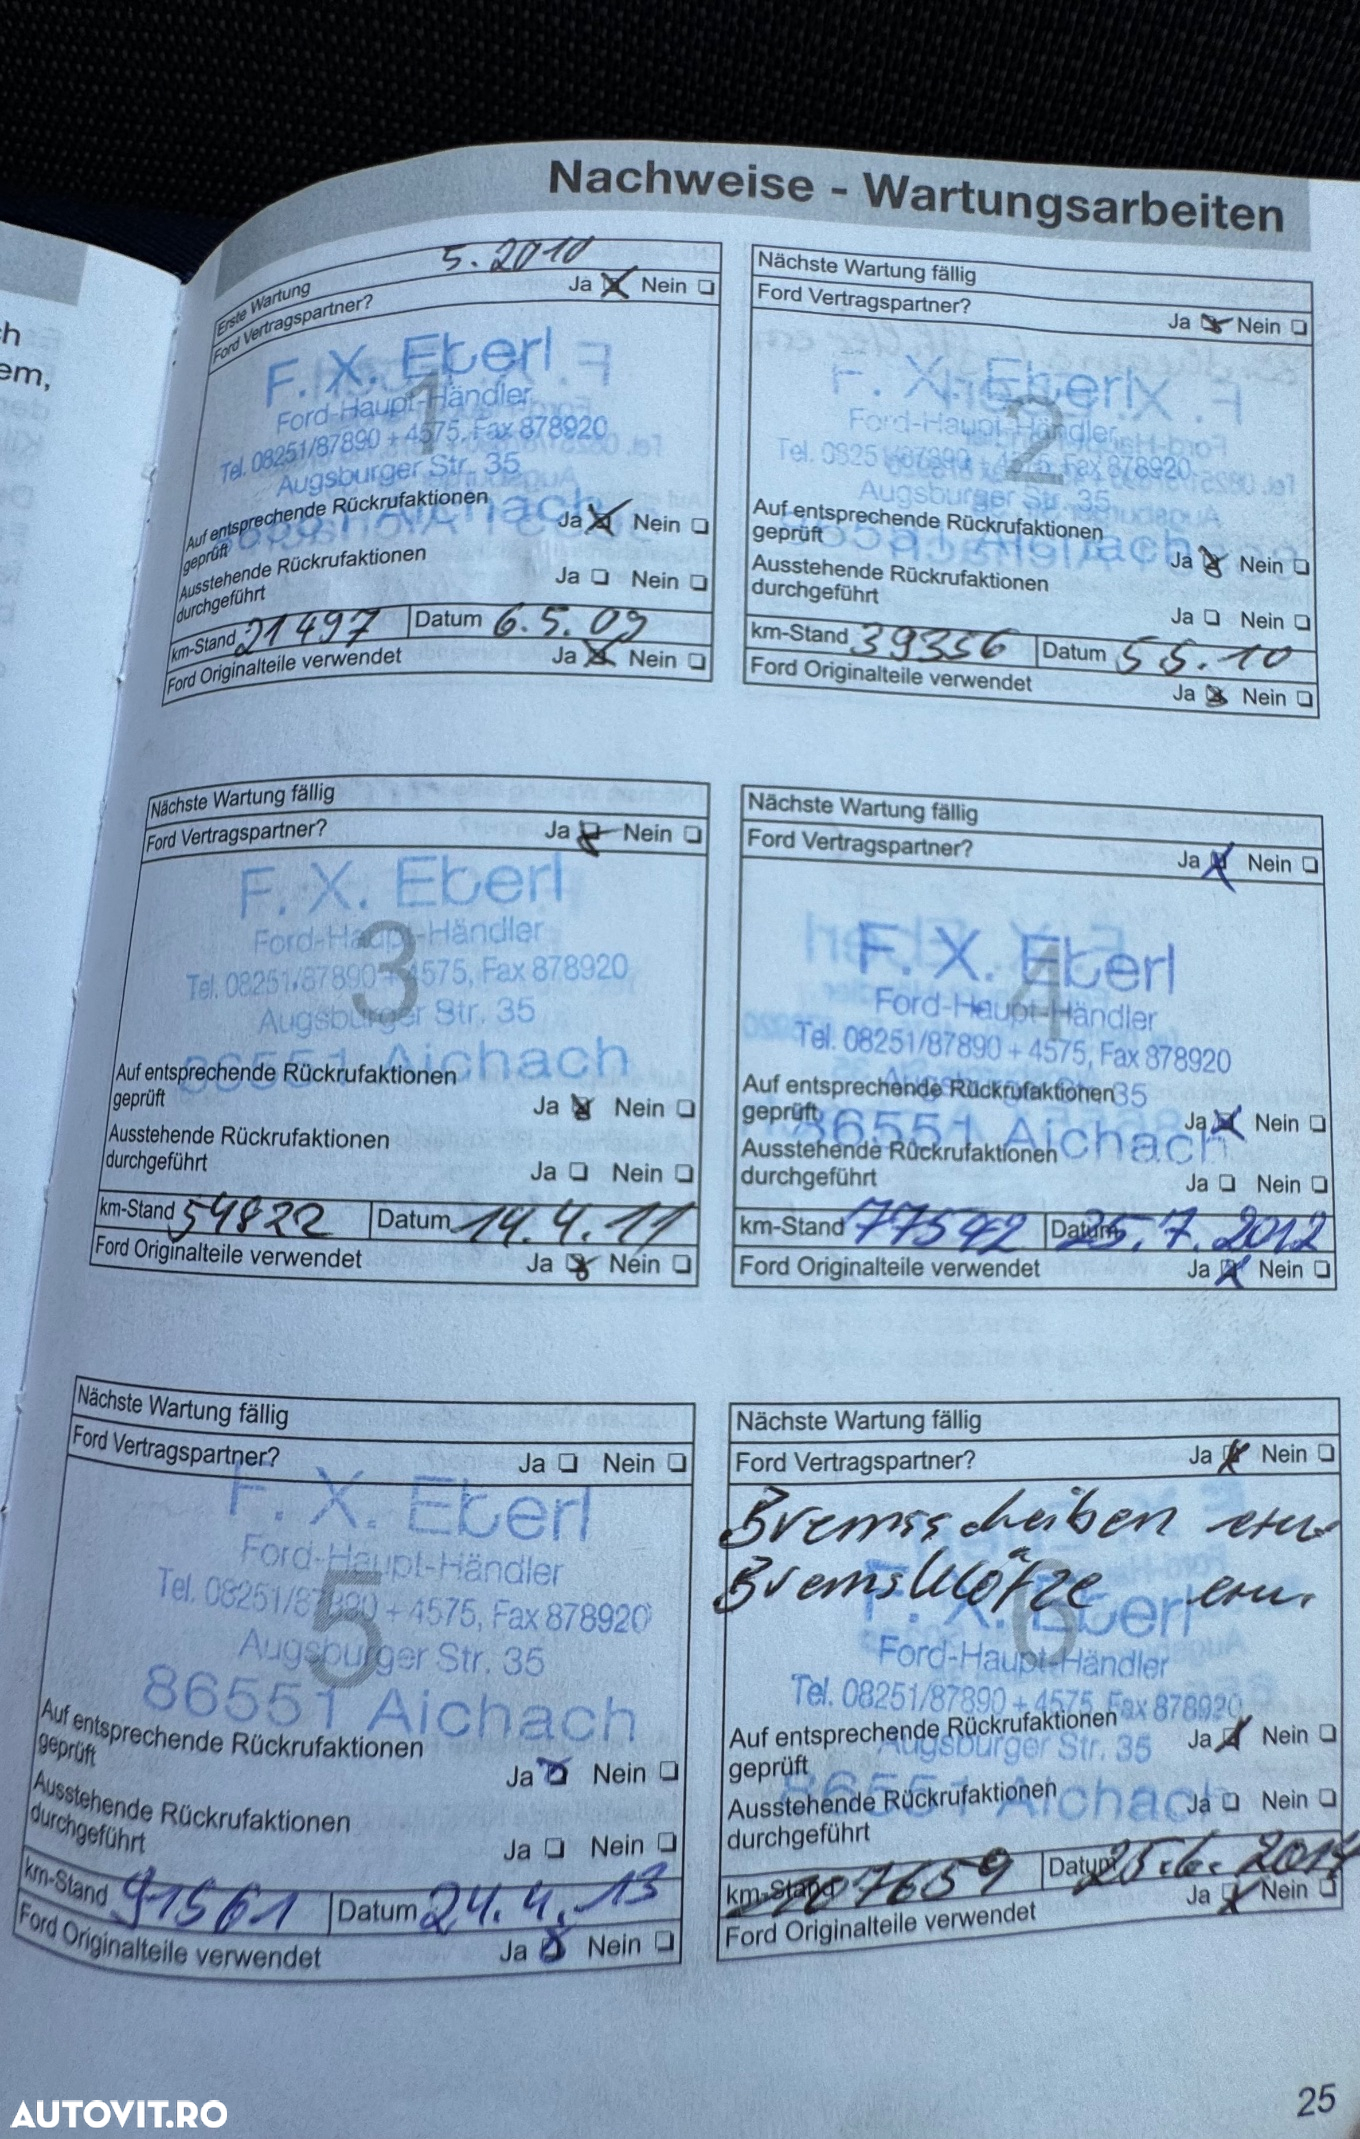 ch
em,
Nachweise - Wartungsarbeiten
Erste Wartung 5.2010
Ford Vertragspartner? Ja Nein
1
F. X. Eberl
Ford-Haupt-Händler
Tel. 08251/87890 + 4575, Fax 878920
Augsburger Str. 35
86551 Aichach
Auf entsprechende Rückrufaktionen
geprüft Ja Nein
Ausstehende Rückrufaktionen
durchgeführt Ja Nein
km-Stand 21497 Datum 6.5.09
Ford Originalteile verwendet Ja Nein
Nächste Wartung fällig
Ford Vertragspartner? Ja Nein
2
F. X. Eberl
Ford-Haupt-Händler
Tel. 08251/87890 + 4575, Fax 878920
Augsburger Str. 35
86551 Aichach
Auf entsprechende Rückrufaktionen
geprüft Ja Nein
Ausstehende Rückrufaktionen
durchgeführt Ja Nein
km-Stand 39356 Datum 5 5.10
Ford Originalteile verwendet Ja Nein
Nächste Wartung fällig
Ford Vertragspartner? Ja Nein
3
F. X. Eberl
Ford-Haupt-Händler
Tel. 08251/87890 + 4575, Fax 878920
Augsburger Str. 35
86551 Aichach
Auf entsprechende Rückrufaktionen
geprüft Ja Nein
Ausstehende Rückrufaktionen
durchgeführt Ja Nein
km-Stand 54822 Datum 14.4.11
Ford Originalteile verwendet Ja Nein
Nächste Wartung fällig
Ford Vertragspartner? Ja Nein
4
F. X. Eberl
Ford-Haupt-Händler
Tel. 08251/87890 + 4575, Fax 878920
Augsburger Str. 35
86551 Aichach
Auf entsprechende Rückrufaktionen
geprüft Ja Nein
Ausstehende Rückrufaktionen
durchgeführt Ja Nein
km-Stand 77542 Datum 25.7.2012
Ford Originalteile verwendet Ja Nein
Nächste Wartung fällig
Ford Vertragspartner? Ja Nein
5
F. X. Eberl
Ford-Haupt-Händler
Tel. 08251/87890 + 4575, Fax 878920
Augsburger Str. 35
86551 Aichach
Auf entsprechende Rückrufaktionen
geprüft Ja Nein
Ausstehende Rückrufaktionen
durchgeführt Ja Nein
km-Stand 91561 Datum 24.4.13
Ford Originalteile verwendet Ja Nein
Nächste Wartung fällig
Ford Vertragspartner? Ja Nein
Bremsscheiben ern.
Bremsklötze ern.
6
F. X. Eberl
Ford-Haupt-Händler
Tel. 08251/87890 + 4575, Fax 878920
Augsburger Str. 35
86551 Aichach
Auf entsprechende Rückrufaktionen
geprüft Ja Nein
Ausstehende Rückrufaktionen
durchgeführt Ja Nein
km-Stand 107659 Datum 25.6.2014
Ford Originalteile verwendet Ja Nein
25
AUTOVIT.RO